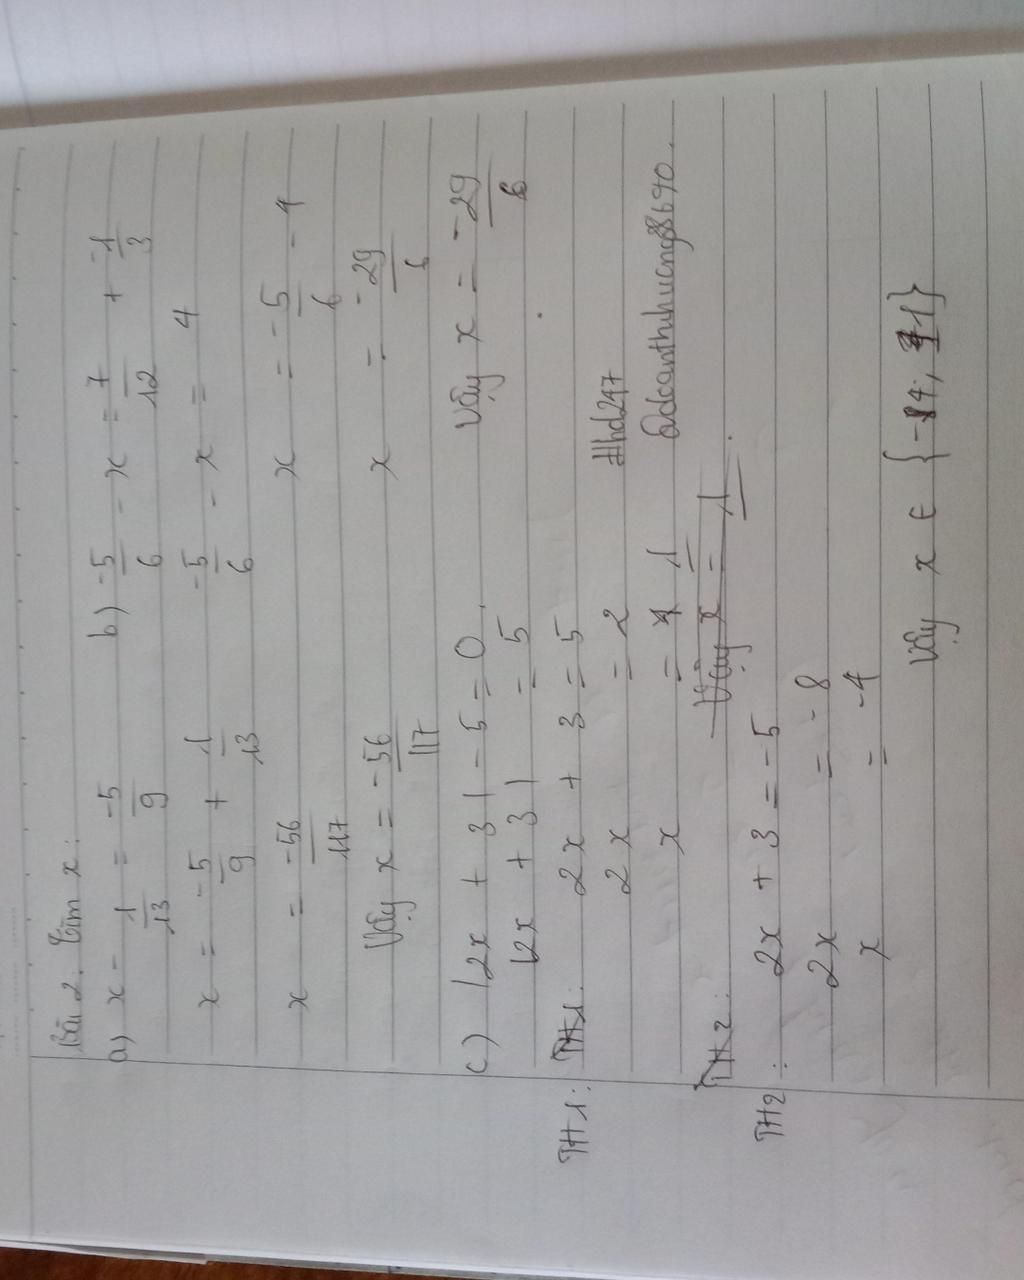 Bài 2. Tìm x:
a) x - 1/13 = -5/9
x = -5/9 + 1/13
x = -56/117
Vậy x = -56/117
b) -5/6 - x = 7/12 + -1/3
-5/6 - x = 4
x = -5/6 - 4
x = -29/6
Vậy x = -29/6
c) |2x + 3| - 5 = 0.
|2x + 3| = 5
TH1: TH1: 2x + 3 = 5
2x = 2
x = 1
Vậy x = 1.
TH2:
TH2: 2x + 3 = -5
2x = -8
x = -4
#hd247
@doanthuhuong98690.
Vậy x ∈ {-4; 1}